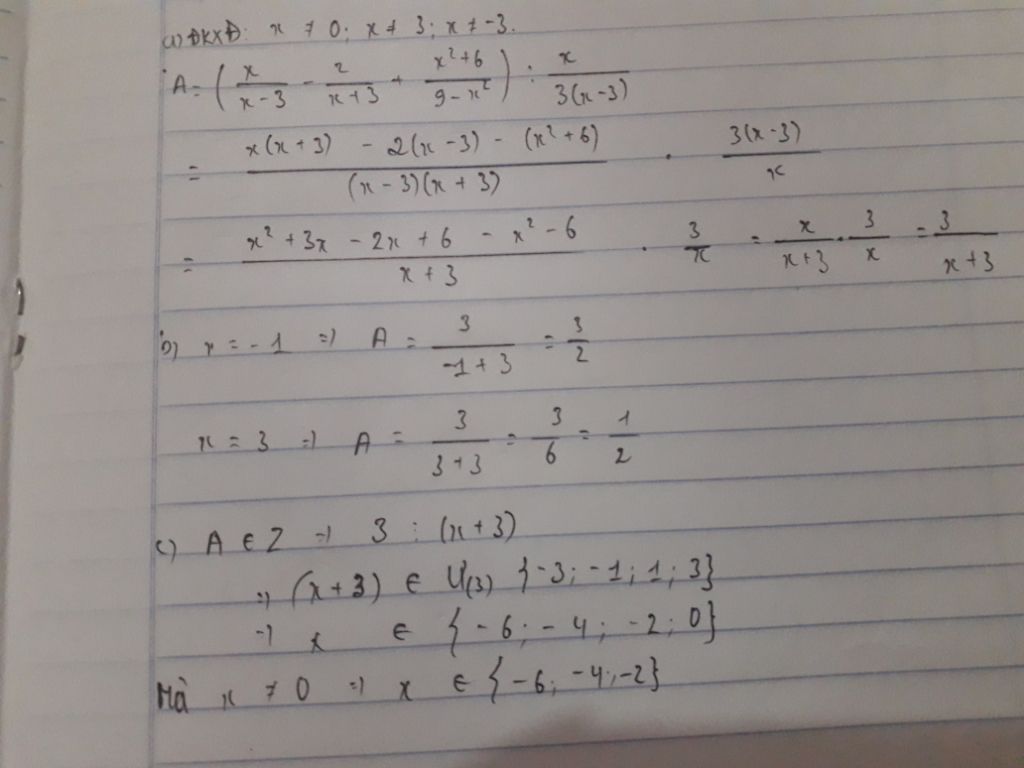 a) ĐKXĐ: x ≠ 0; x ≠ 3; x ≠ -3.
A = (x/(x-3) - 2/(x+3) + (x²+6)/(9-x²)) : x/(3(x-3))
= (x(x+3) - 2(x-3) - (x²+6))/((x-3)(x+3)) . 3(x-3)/x
= (x² + 3x - 2x + 6 - x² - 6)/(x+3) . 3/x = x/(x+3) . 3/x = 3/(x+3)
b) x = -1 => A = 3/(-1+3) = 3/2
x = 3 => A = 3/(3+3) = 3/6 = 1/2
c) A ∈ Z => 3 ⋮ (x+3)
=> (x+3) ∈ Ư(3) {-3; -1; 1; 3}
=> x ∈ {-6; -4; -2; 0}
Mà x ≠ 0 => x ∈ {-6; -4; -2}